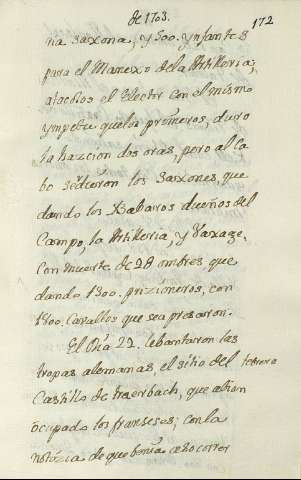 de 1703.
172
na saxona, y 500. ynfantes
para el Manexo de la Artilleria;
atacólos el Elector con el mismo
ympetu que los primeros, duro
la hazcion dos oras, pero al ca
bo sedieron los saxones, que
dando los Babaros dueños del
Campo, la Artilleria, y Vaxaxe.
Con muerte de 28 ombres que
dando 1300. prizioneros, con
1800. Cavallos que sea presaron.
El Dia 22. lebantaron las
tropas alemanas, el sitio del
febrero
Castillo de traerbach, que abian
ocupado los franseses; con la
notizia de que bonia a socorrer